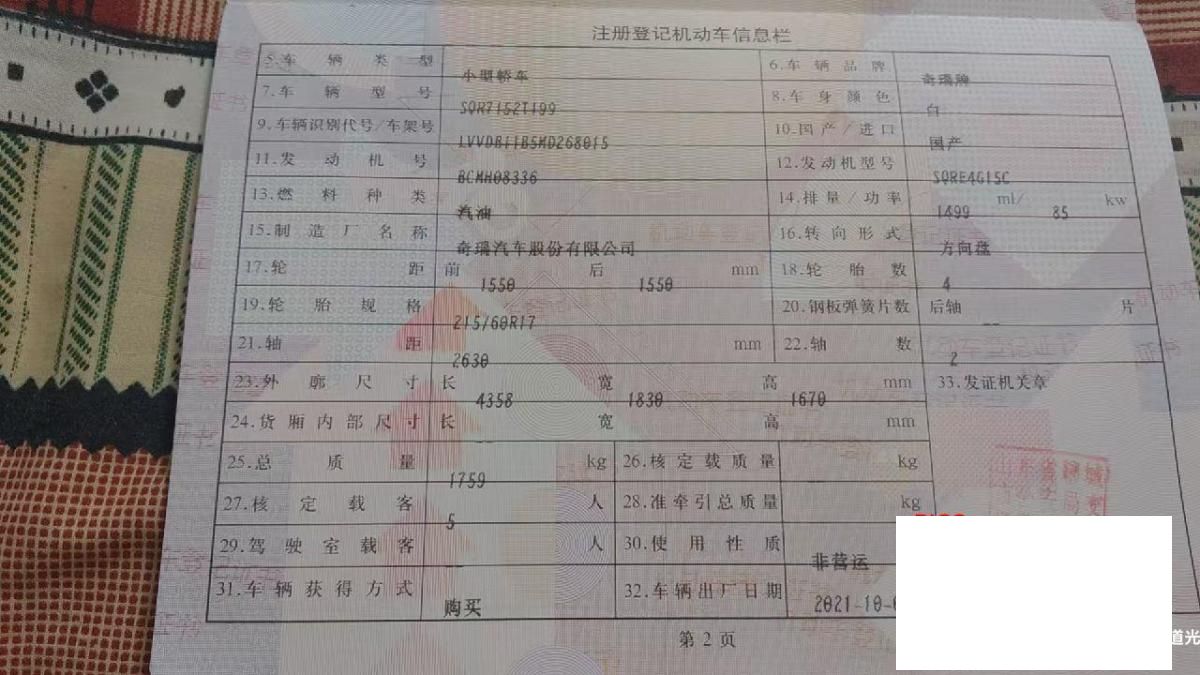 注册登记机动车信息栏
5.车辆类型 小型轿车 6.车辆品牌 奇瑞牌
7.车辆型号 SQR7152T199 8.车身颜色 白
9.车辆识别代号/车架号 LVVDB11B5MD268015 10.国产/进口 国产
11.发动机号 BCMH08336 12.发动机型号 SQRE4G15C
13.燃料种类 汽油 14.排量/功率 1499 ml/ 85 kw
15.制造厂名称 奇瑞汽车股份有限公司 16.转向形式 方向盘
17.轮距 前 1550 后 1550 mm 18.轮胎数 4
19.轮胎规格 215/60R17 20.钢板弹簧片数 后轴 -- 片
21.轴距 2630 mm 22.轴数 2
23.外廓尺寸 长 4358 宽 1830 高 1670 mm 33.发证机关章
24.货厢内部尺寸 长 -- 宽 高 mm
25.总质量 1759 kg 26.核定载质量 -- kg
27.核定载客 5 人 28.准牵引总质量 -- kg
29.驾驶室载客 -- 人 30.使用性质 非营运
31.车辆获得方式 购买 32.车辆出厂日期 2021-10-
第2页
道光